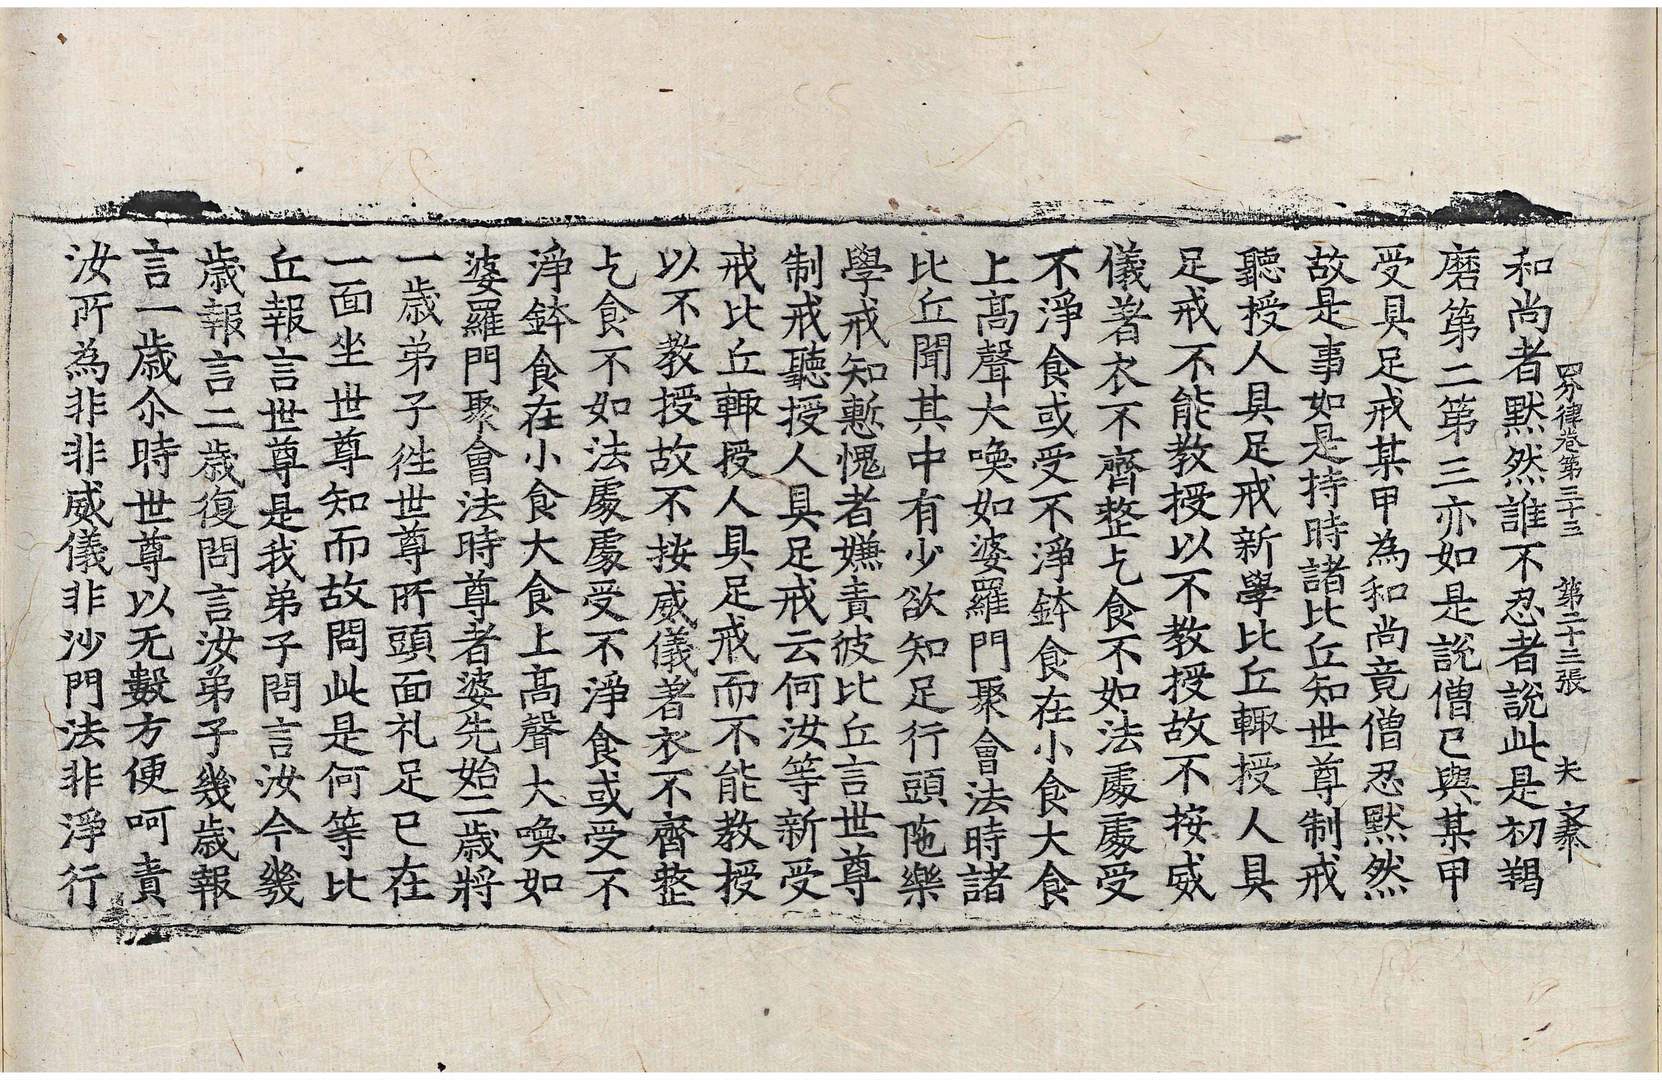 四分律卷第三十三　第二十二張　夫
和尚者默然誰不忍者說此是初羯
磨第二第三亦如是說僧已與某甲
受具足戒某甲為和尚竟僧忍默然
故是事如是持時諸比丘知世尊制戒
聽授人具足戒新學比丘輙授人具
足戒不能教授以不教授故不按威
儀著衣不齊整乞食不如法處處受
不淨食或受不淨鉢食在小食大食
上高聲大喚如婆羅門聚會法時諸
比丘聞其中有少欲知足行頭陁樂
學戒知慙愧者嫌責彼比丘言世尊
制戒聽授人具足戒云何汝等新受
戒比丘輙授人具足戒而不能教授
以不教授故不按威儀著衣不齊整
乞食不如法處處受不淨食或受不
淨鉢食在小食大食上高聲大喚如
婆羅門聚會法時尊者婆先始二歲將
一歲弟子徃世尊所頭面礼足已在
一面坐世尊知而故問此是何等比
丘報言世尊是我弟子問言汝今幾
歲報言二歲復問言汝弟子幾歲報
言一歲尒時世尊以无數方便呵責
汝所為非非威儀非沙門法非淨行